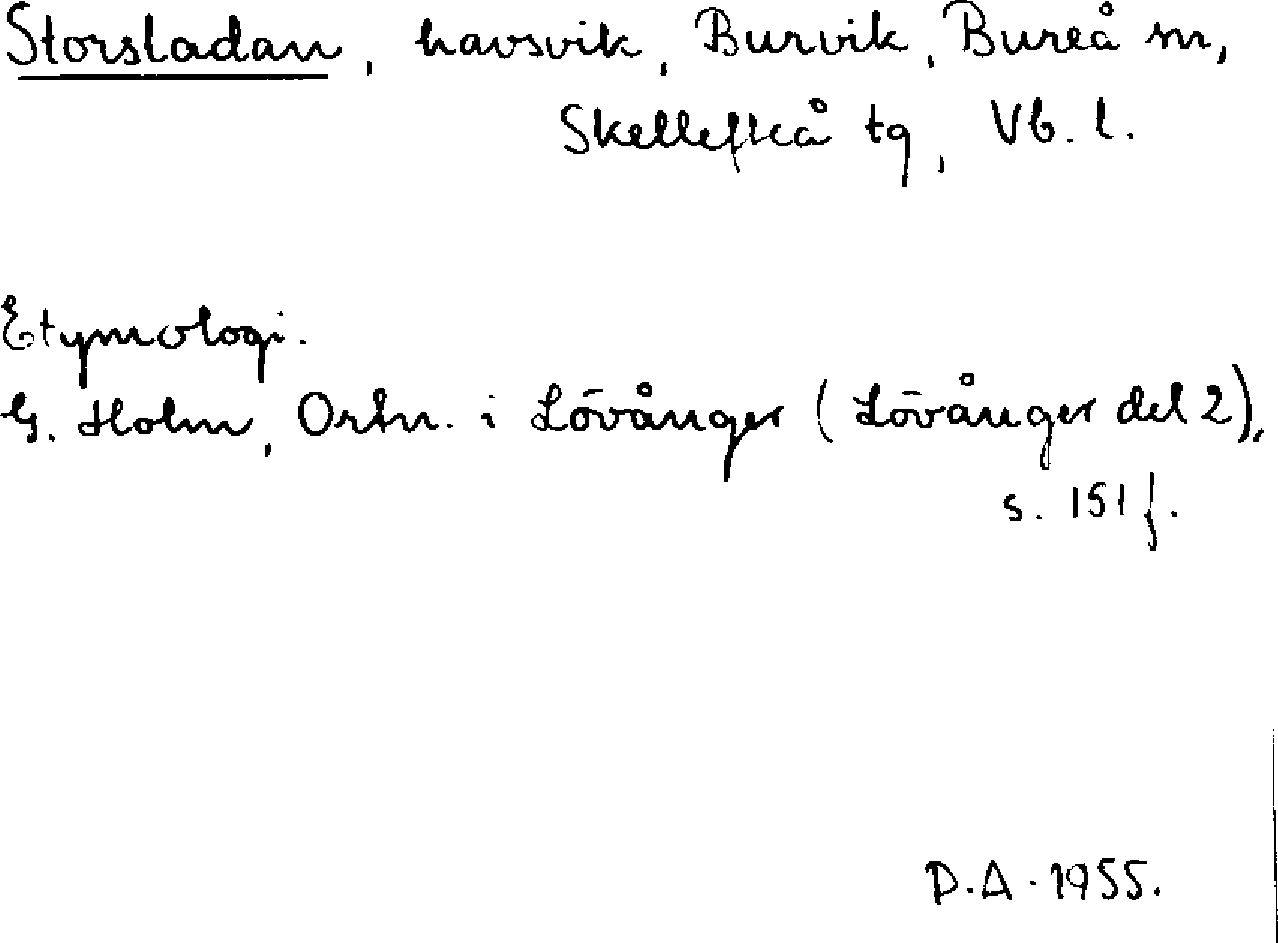 Storsladan, havsvik, Burvik, Bureå sn,
Skellefteå tg, Vb. l.
Etymologi.
G. Holm, Ortn. i Lövånger (Lövånger del 2),
s. 151 f.
P.A. 1955.